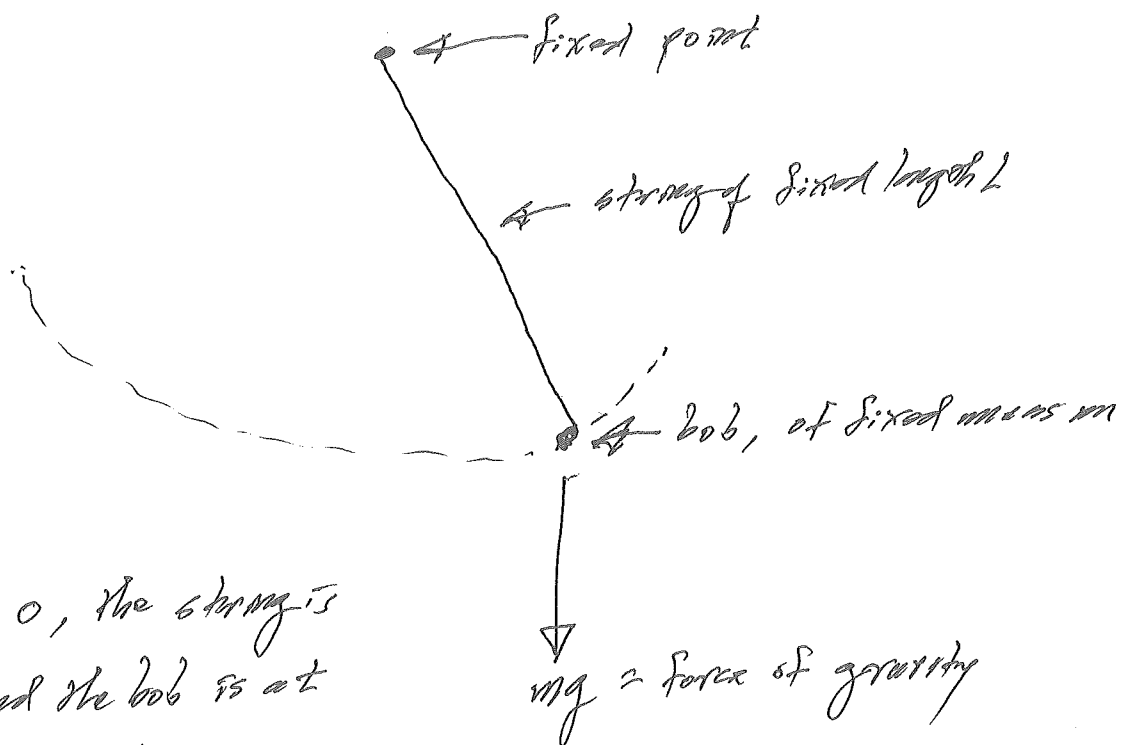 fixed point
string of fixed length L
bob, of fixed mass m
0, the string is
nd the bob is at
mg = force of gravity